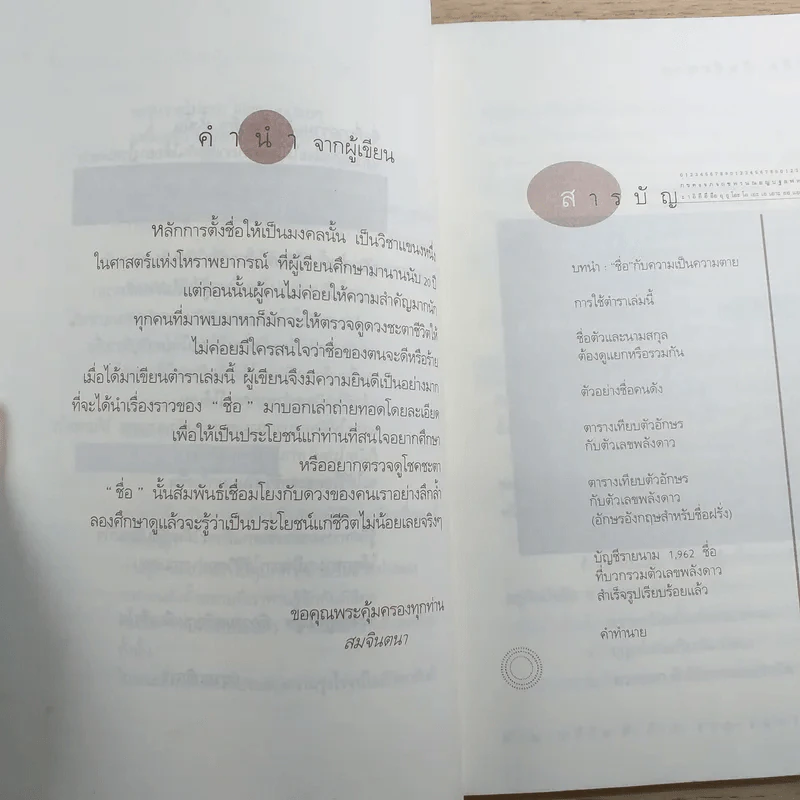 คำนำ จากผู้เขียน
หลักการตั้งชื่อให้เป็นมงคลนั้น เป็นวิชาแขนงหนึ่ง
ในศาสตร์แห่งโหราพยากรณ์ ที่ผู้เขียนศึกษามานานนับ 20 ปี
แต่ก่อนนั้นผู้คนไม่ค่อยให้ความสำคัญมากนัก
ทุกคนที่มาพบมาหาก็มักจะให้ตรวจดูดวงชะตาชีวิตให้
ไม่ค่อยมีใครสนใจว่าชื่อของตนจะดีหรือร้าย
เมื่อได้มาเขียนตำราเล่มนี้ ผู้เขียนจึงมีความยินดีเป็นอย่างมาก
ที่จะได้นำเรื่องราวของ "ชื่อ" มาบอกเล่าถ่ายทอดโดยละเอียด
เพื่อให้เป็นประโยชน์แก่ท่านที่สนใจอยากศึกษา
หรืออยากตรวจดูโชคชะตา
"ชื่อ" นั้นสัมพันธ์เชื่อมโยงกับดวงของคนเราอย่างลึกล้ำ
ลองศึกษาดูแล้วจะรู้ว่าเป็นประโยชน์แก่ชีวิตไม่น้อยเลยจริงๆ
ขอคุณพระคุ้มครองทุกท่าน
สมจินตนา
สารบัญ
บทนำ : "ชื่อ"กับความเป็นความตาย
การใช้ตำราเล่มนี้
ชื่อตัวและนามสกุล
ต้องดูแยกหรือรวมกัน
ตัวอย่างชื่อคนดัง
ตารางเทียบตัวอักษร
กับตัวเลขพลังดาว
ตารางเทียบตัวอักษร
กับตัวเลขพลังดาว
(อักษรอังกฤษสำหรับชื่อฝรั่ง)
บัญชีรายนาม 1,962 ชื่อ
ที่บวกรวมตัวเลขพลังดาว
สำเร็จรูปเรียบร้อยแล้ว
คำทำนาย